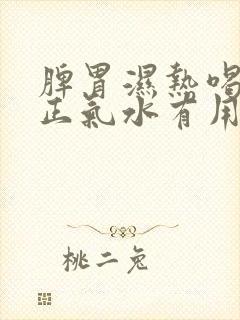 脾胃濕熱喝
正氣水有用
桃二兔